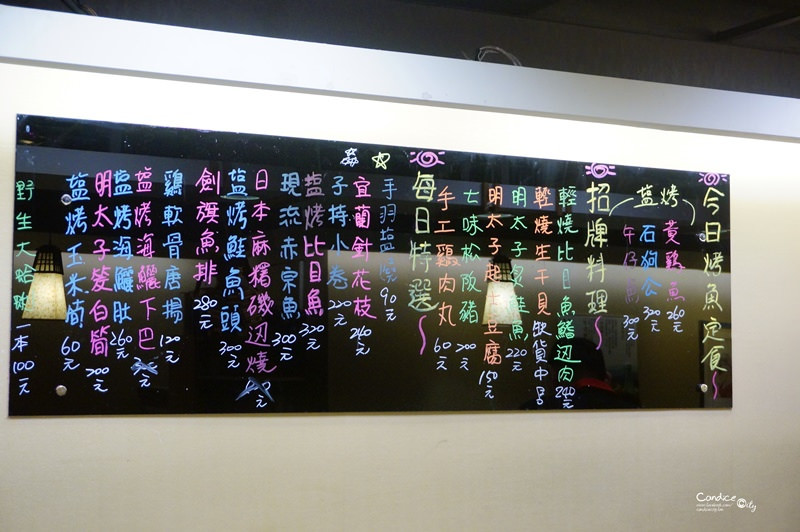 今日烤魚定食~
塩烤
黃雞魚 260元
石狗公 320元
午仔魚 300元
招牌料理~
輕燒比目魚鰭边肉 240元
輕燒生干貝 缺貨中
明太子炙鮭魚 220元
明太子起士豆腐 150元
七味松阪豬 200元
手工雞肉丸 60元
每日特選~
手羽塩燒 90元
宜蘭針花枝 240元
子持小卷 220元
塩烤比目魚 320元
現流赤宗魚 300元
日本麻糬磯边燒 元
塩烤鮭魚頭 300元
劍旗魚排 280元
雞軟骨唐揚 120元
塩烤海鱺下巴 元
塩烤海鱺肚 260元
明太子筊白筍 200元
塩烤玉米筍 60元
野生大蛤 一本100元
Candice City